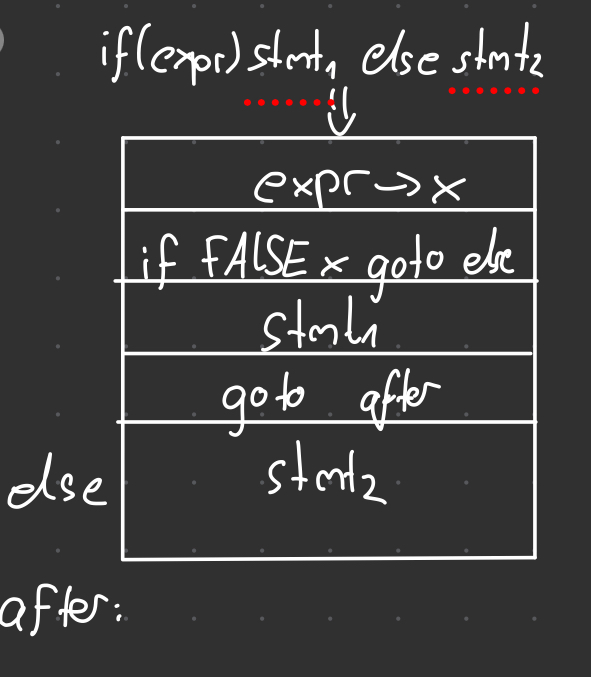 if(expr) stmt₁ else stmt₂
expr→x
if FALSE x goto else
stmt₁
goto after
else stmt₂
after: